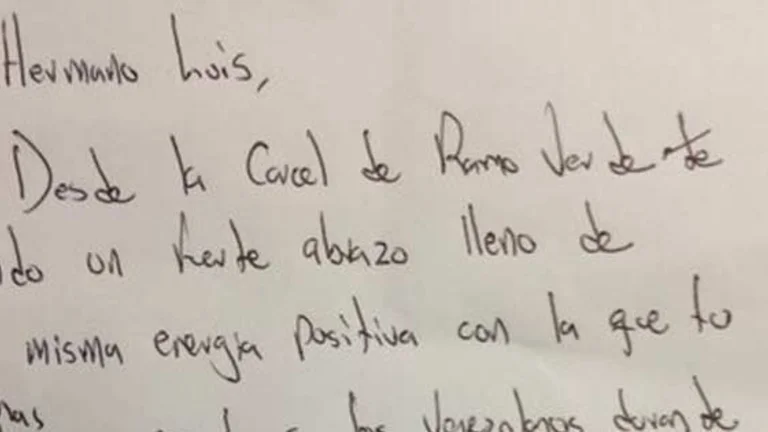 Hermano Luis,
Desde la Carcel de Ramo Verde te
do un fuerte abrazo lleno de
misma energia positiva con la que tu
nas los Venezolanos durande